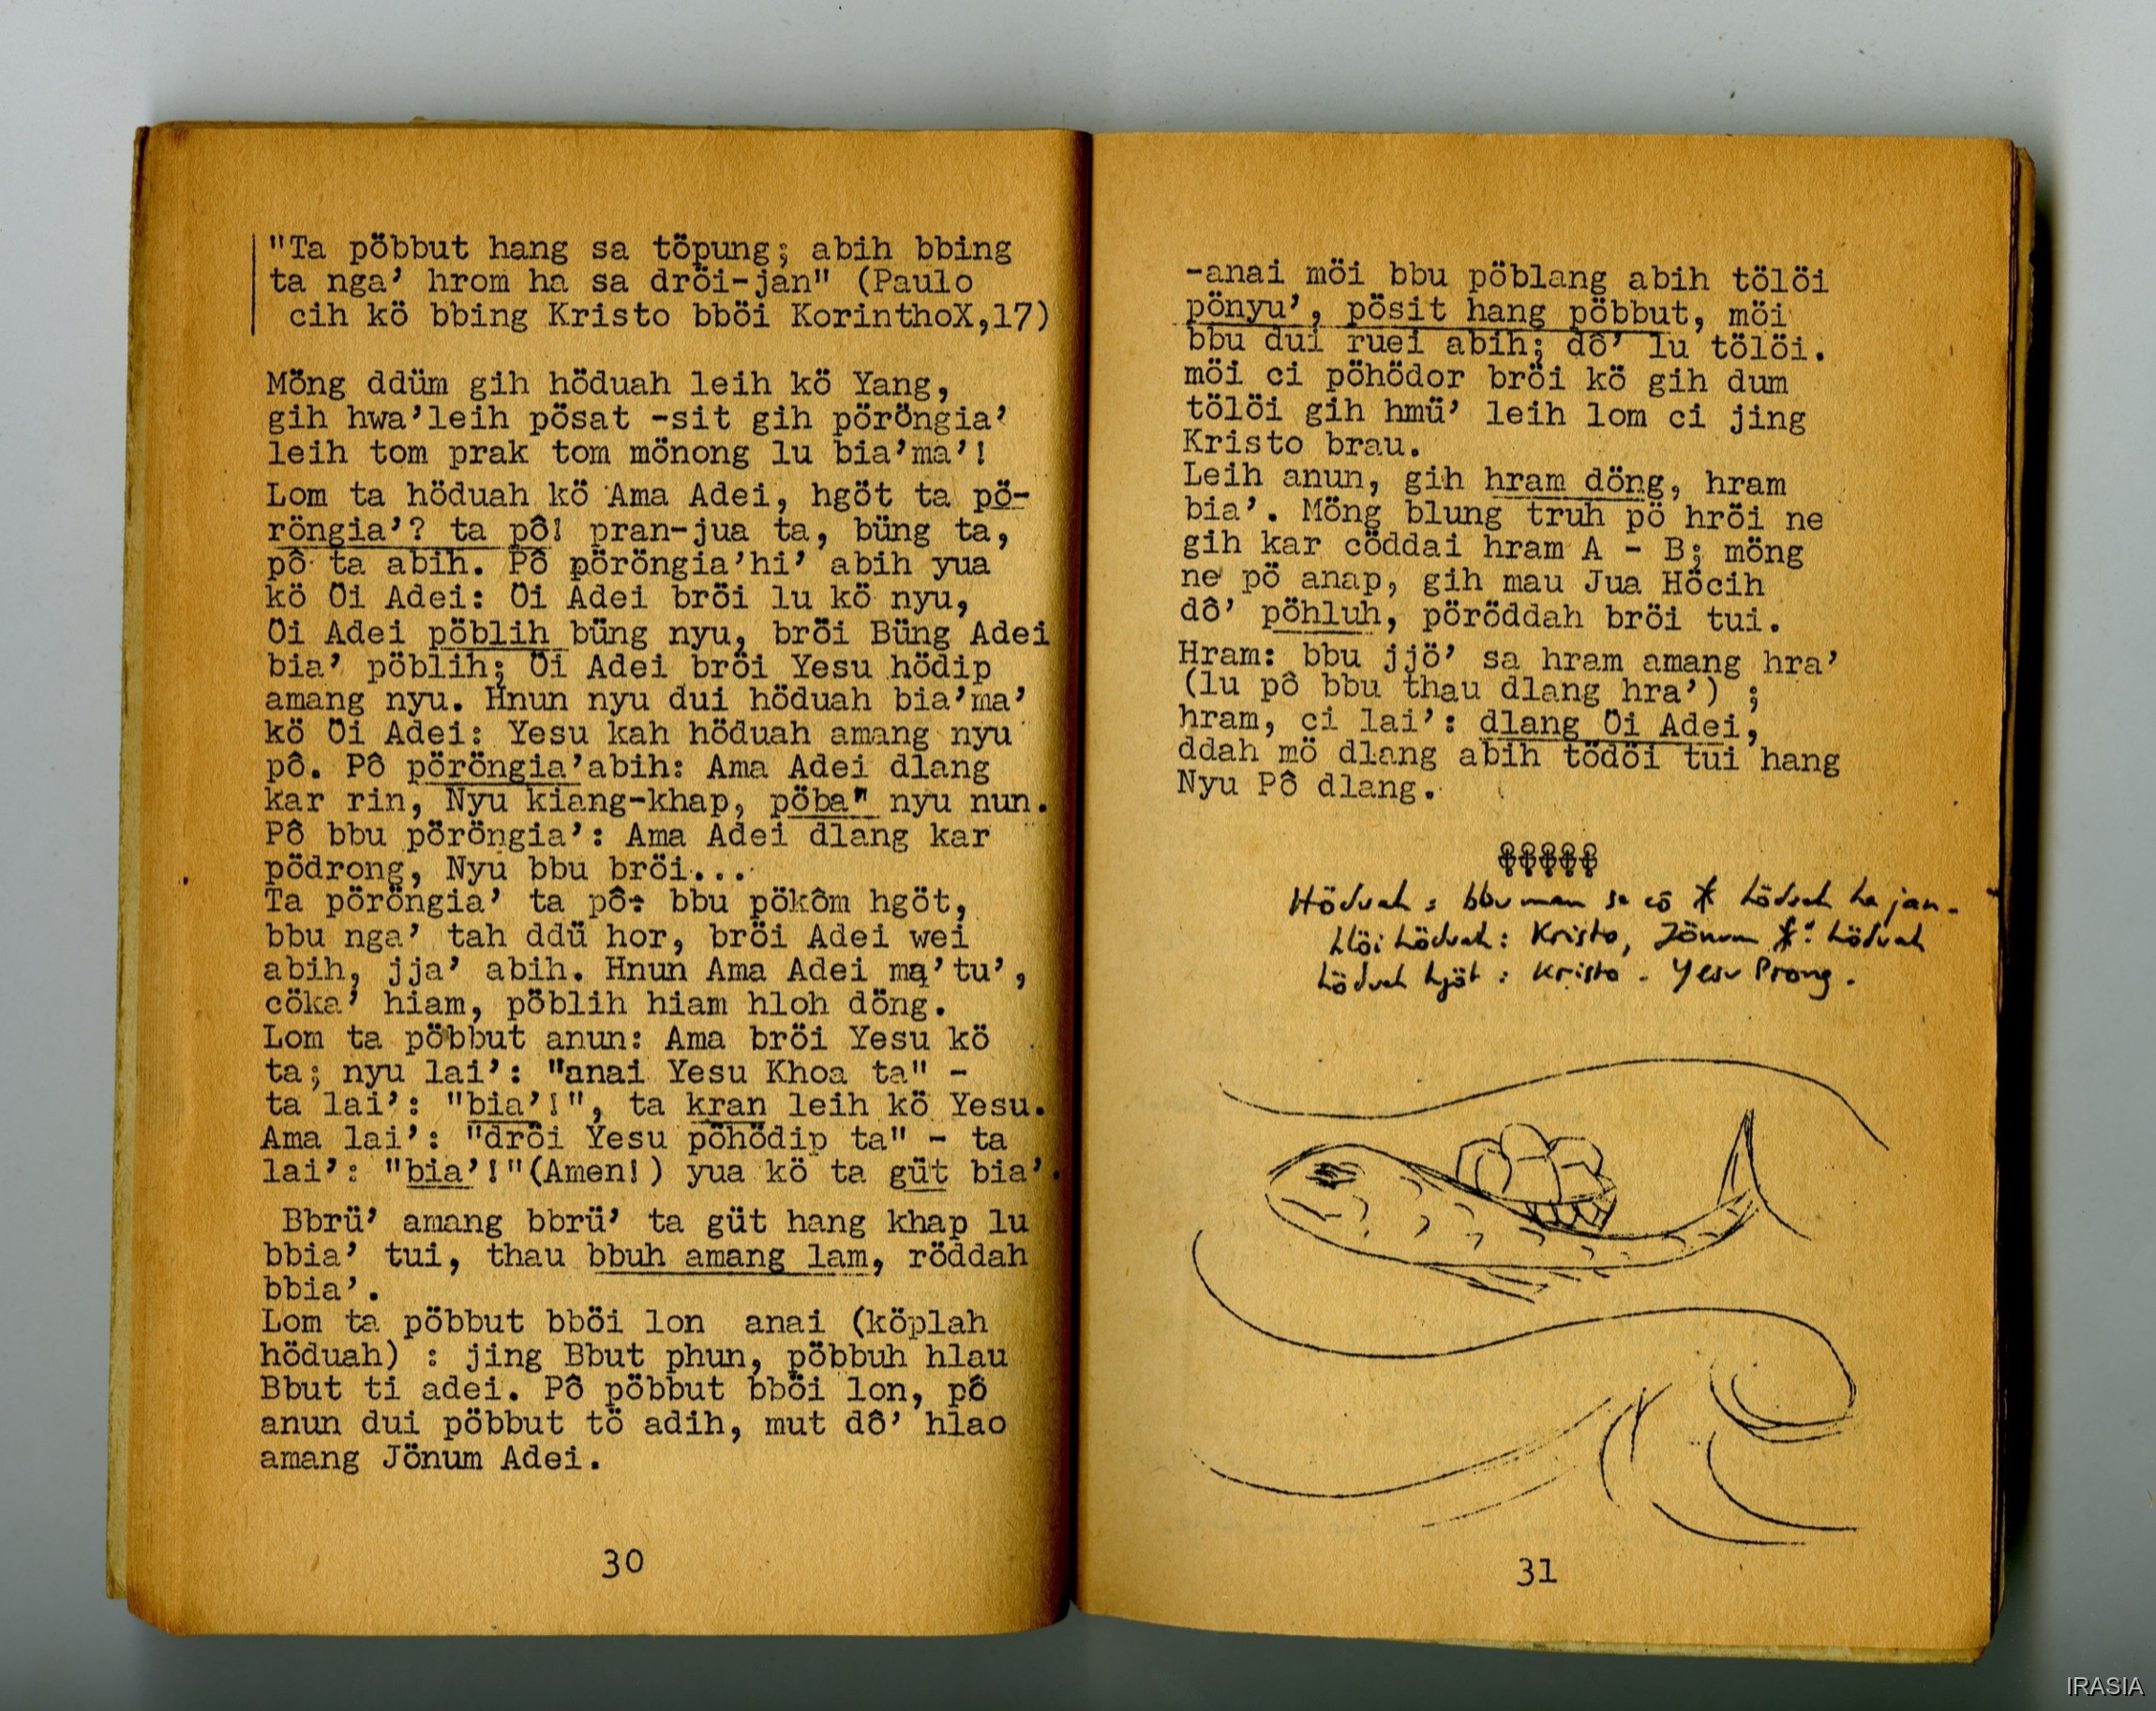 "Ta pöbbut hang sa töpung; abih bbing
ta nga’ hrom ha sa dröi-jan" (Paulo
cih kö bbing Kristo bböi KorinthoX,17)
Möng ddüm gih höduah leih kö Yang,
gih hwa’leih pösat -sit gih pöröngia’
leih tom prak tom mönong lu bia’ma’!
Lom ta höduah kö Ama Adei, hgöt ta pö-
röngia’? ta pô! pran-jua ta, büng ta,
pô ta abih. Pô pöröngia’hi’ abih yua
kö Öi Adei: Öi Adei bröi lu kö nyu,
Öi Adei pöblih büng nyu, bröi Büng Adei
bia’ pöblih; Öi Adei bröi Yesu hödip
amang nyu. Hnun nyu dui höduah bia’ma’
kö Öi Adei: Yesu kah höduah amang nyu
pô. Pô pöröngia’abih: Ama Adei dlang
kar rin, Nyu kiang-khap, pöba" nyu nun.
Pô bbu pöröngia’: Ama Adei dlang kar
pödrong, Nyu bbu bröi...
Ta pöröngia’ ta pô: bbu pökôm hgöt,
bbu nga’ tah ddü hor, bröi Adei wei
abih, jja’ abih. Hnun Ama Adei mą’tu’,
cöka’ hiam, pöblih hiam hloh döng.
Lom ta pöbbut anun: Ama bröi Yesu kö
ta; nyu lai’: "anai Yesu Khoa ta" -
ta lai’: "bia’!", ta kran leih kö Yesu.
Ama lai’: "dröi Yesu pöhödip ta" - ta
lai’: "bia’!"(Amen!) yua kö ta güt bia’.
Bbrü’ amang bbrü’ ta güt hang khap lu
bbia’ tui, thau bbuh amang lam, röddah
bbia’.
Lom ta pöbbut bböi lon anai (köplah
höduah) : jing Bbut phun, pöbbuh hlau
Bbut ti adei. Pô pöbbut bböi lon, pô
anun dui pöbbut tö adih, mut dô’ hlao
amang Jönum Adei.
30
-anai möi bbu pöblang abih tölöi
pönyu’, pösit hang pöbbut, möi
bbu dui ruei abih; dô’ lu tölöi.
möi ci pöhödor bröi kö gih dum
tölöi gih hmü’ leih lom ci jing
Kristo brau.
Leih anun, gih hram döng, hram
bia’. Möng blung truh pö hröi ne
gih kar cöddai hram A - B; möng
ne pö anap, gih mau Jua Höcih
dô’ pöhluh, pöröddah bröi tui.
Hram: bbu jjö’ sa hram amang hra’
(lu pô bbu thau dlang hra’) ;
hram, ci lai’: dlang Öi Adei,
ddah mö dlang abih tödöi tui hang
Nyu Pô dlang.
Höduah : bbu man sa cô höduah ha jan.
höduah : Kristo, Jönum : höduah
höduah hgöt : Kristo . Yesu Prong.
31
IRASIA